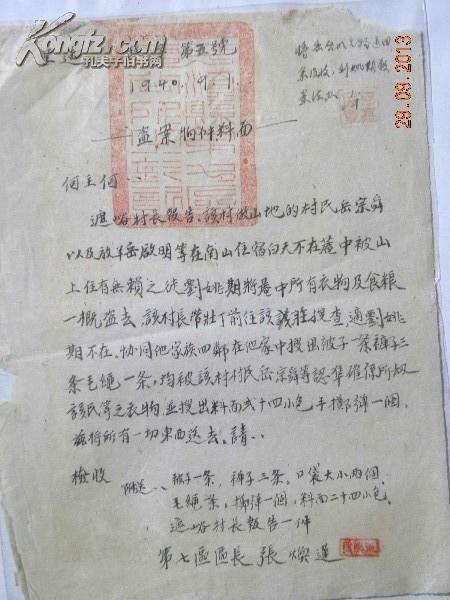 Kongfz.com
孔夫子旧书网
29.09.2013
第五號
1940.4.1.
盗案物件料面
村長報告，該村做山地的村民岳宗舜
以及放羊岳啟明等在南山住宿白天不在菴中被山
上住有無賴之徒劉姚期將菴中所有衣物及食粮
一概盗去，該村長帶壯丁前往該義莊搜查，適劉姚
期不在，協同他家族四鄰在他家中搜出被子一条褲子三
条毛繩一条，均被該村村民岳宗舜等認準確係所奴
該民等之衣物，並搜出料面弍十四小包手擲弹一個，
茲將所有一切東西送去。請、、
檢收
附送、、被子一条，褲子三条，口袋大小兩個，
毛繩一条，擲弹一個，料面二十四小包。
村長報告一件
第七區區長 張煥蓮